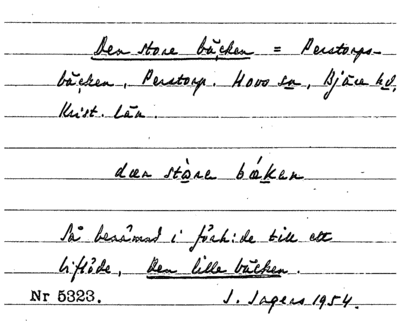 Den store bäcken = Perstorps-
bäcken, Perstorp. Hovs sn, Bjäre hd,
Krist. län.
dæn stòra bǽken
Så benämnd i förh:de till ett
biflöde, Den lille bäcken.
Nr 5323. I. Ingers 1954.